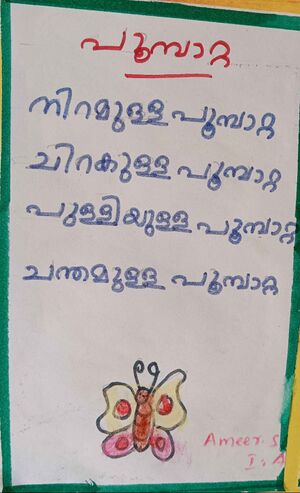 പൂമ്പാറ്റ
നിറമുള്ള പൂമ്പാറ്റ
ചിറകുള്ള പൂമ്പാറ്റ
പുള്ളിയുള്ള പൂമ്പാറ്റ
ചന്തമുള്ള പൂമ്പാറ്റ
Ameer. S
I. A